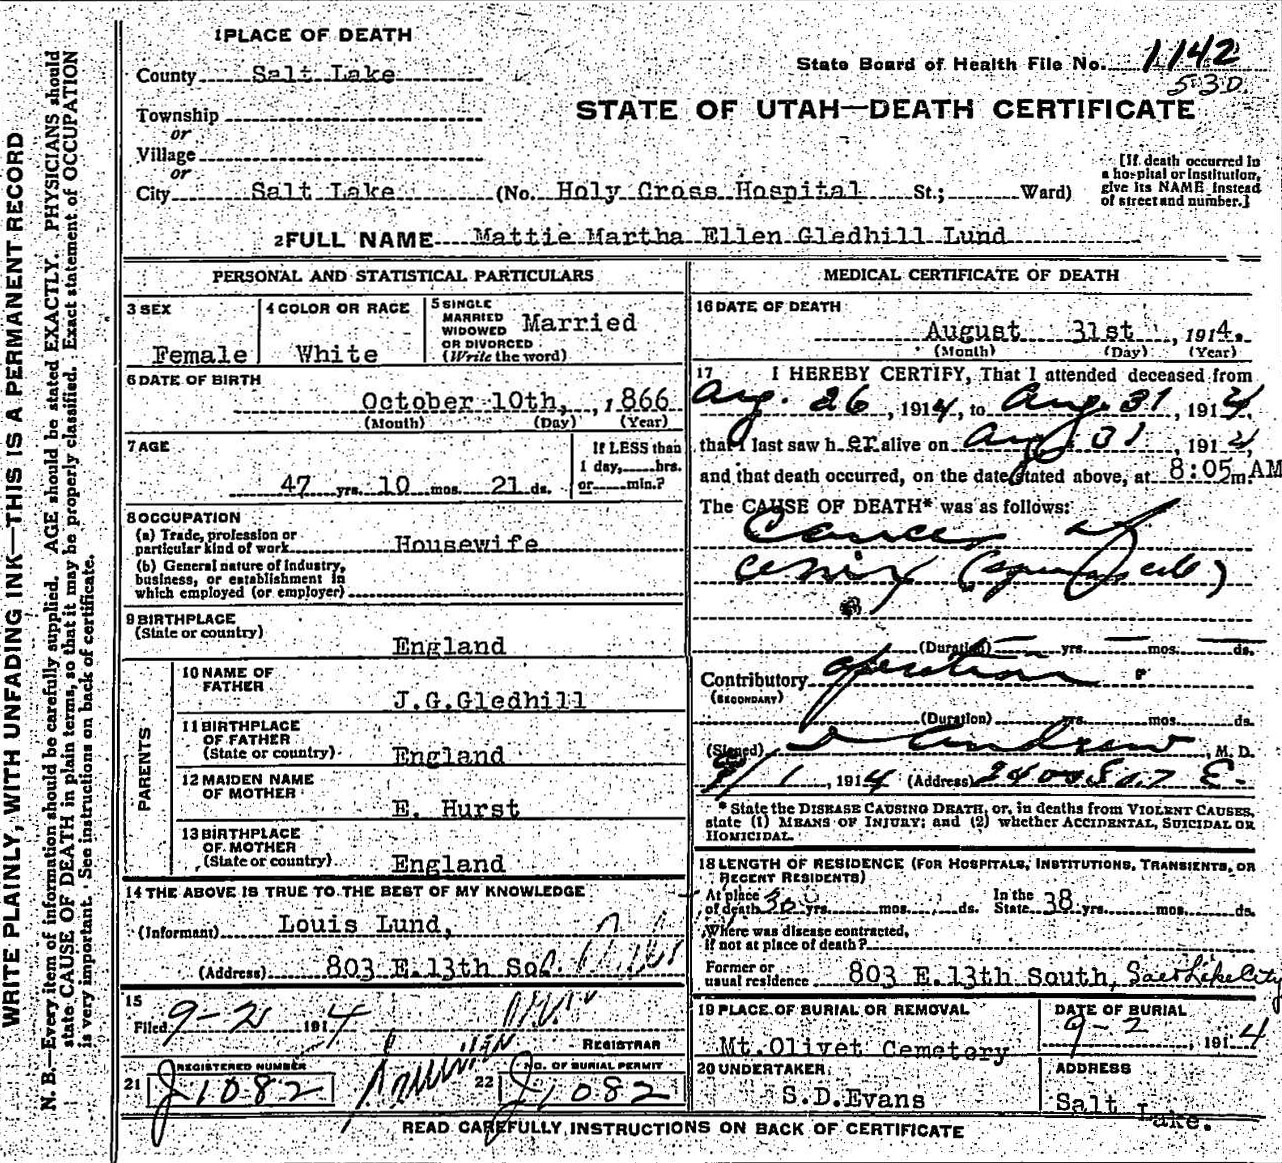 WRITE PLAINLY, WITH UNFADING INK—THIS IS A PERMANENT RECORD
N. B.—Every item of information should be carefully supplied. AGE should be stated EXACTLY. PHYSICIANS should
state CAUSE OF DEATH in plain terms, so that it may be properly classified. Exact statement of OCCUPATION
is very important. See instructions on back of certificate.
1 PLACE OF DEATH
County Salt Lake
State Board of Health File No. 1142
530
Township
or
Village
or
City Salt Lake (No. Holy Cross Hospital St.; Ward)
STATE OF UTAH—DEATH CERTIFICATE
[If death occurred in
a hospital or institution,
give its NAME instead
of street and number.]
2 FULL NAME Mattie Martha Ellen Gledhill Lund
PERSONAL AND STATISTICAL PARTICULARS
3 SEX
Female
4 COLOR OR RACE
White
5 SINGLE
MARRIED
WIDOWED
OR DIVORCED
(Write the word)
Married
6 DATE OF BIRTH
October 10th, , 1866
(Month) (Day) (Year)
7 AGE
47 yrs. 10 mos. 21 ds.
If LESS than
1 day, hrs.
or min.?
8 OCCUPATION
(a) Trade, profession or
particular kind of work Housewife
(b) General nature of Industry,
business, or establishment in
which employed (or employer)
9 BIRTHPLACE
(State or country)
England
PARENTS
10 NAME OF
FATHER
J.G.Gledhill
11 BIRTHPLACE
OF FATHER
(State or country)
England
12 MAIDEN NAME
OF MOTHER
E. Hurst
13 BIRTHPLACE
OF MOTHER
(State or country)
England
14 THE ABOVE IS TRUE TO THE BEST OF MY KNOWLEDGE
(Informant) Louis Lund,
(Address) 803 E.13th So.
15
Filed 9-2 1914
REGISTRAR
REGISTERED NUMBER
21 J1082
NO. OF BURIAL PERMIT
22 J1082
MEDICAL CERTIFICATE OF DEATH
16 DATE OF DEATH
August 31st , 1914.
(Month) (Day) (Year)
17 I HEREBY CERTIFY, That I attended deceased from
Aug. 26 , 1914, to Aug. 31 , 1914,
that I last saw her alive on Aug 31 , 1914,
and that death occurred, on the date stated above, at 8:05 m. AM
The CAUSE OF DEATH* was as follows:
Cancer of
cervix
(Duration) yrs. mos. ds.
Contributory operation
(SECONDARY)
(Duration) yrs. mos. ds.
(Signed) Andrew , M. D.
9/1 , 1914 (Address)
* State the DISEASE CAUSING DEATH, or, in deaths from VIOLENT CAUSES,
state (1) MEANS OF INJURY; and (2) whether ACCIDENTAL, SUICIDAL OR
HOMICIDAL.
18 LENGTH OF RESIDENCE (FOR HOSPITALS, INSTITUTIONS, TRANSIENTS, OR
RECENT RESIDENTS)
At place
of death 30 yrs. mos. ds.
In the
State 38 yrs. mos. ds.
Where was disease contracted,
if not at place of death?
Former or
usual residence 803 E.13th South, Salt Lake City
19 PLACE OF BURIAL OR REMOVAL
Mt.Olivet Cemetory
DATE OF BURIAL
9-2 , 1914
20 UNDERTAKER
S.D.Evans
ADDRESS
Salt Lake.
READ CAREFULLY INSTRUCTIONS ON BACK OF CERTIFICATE